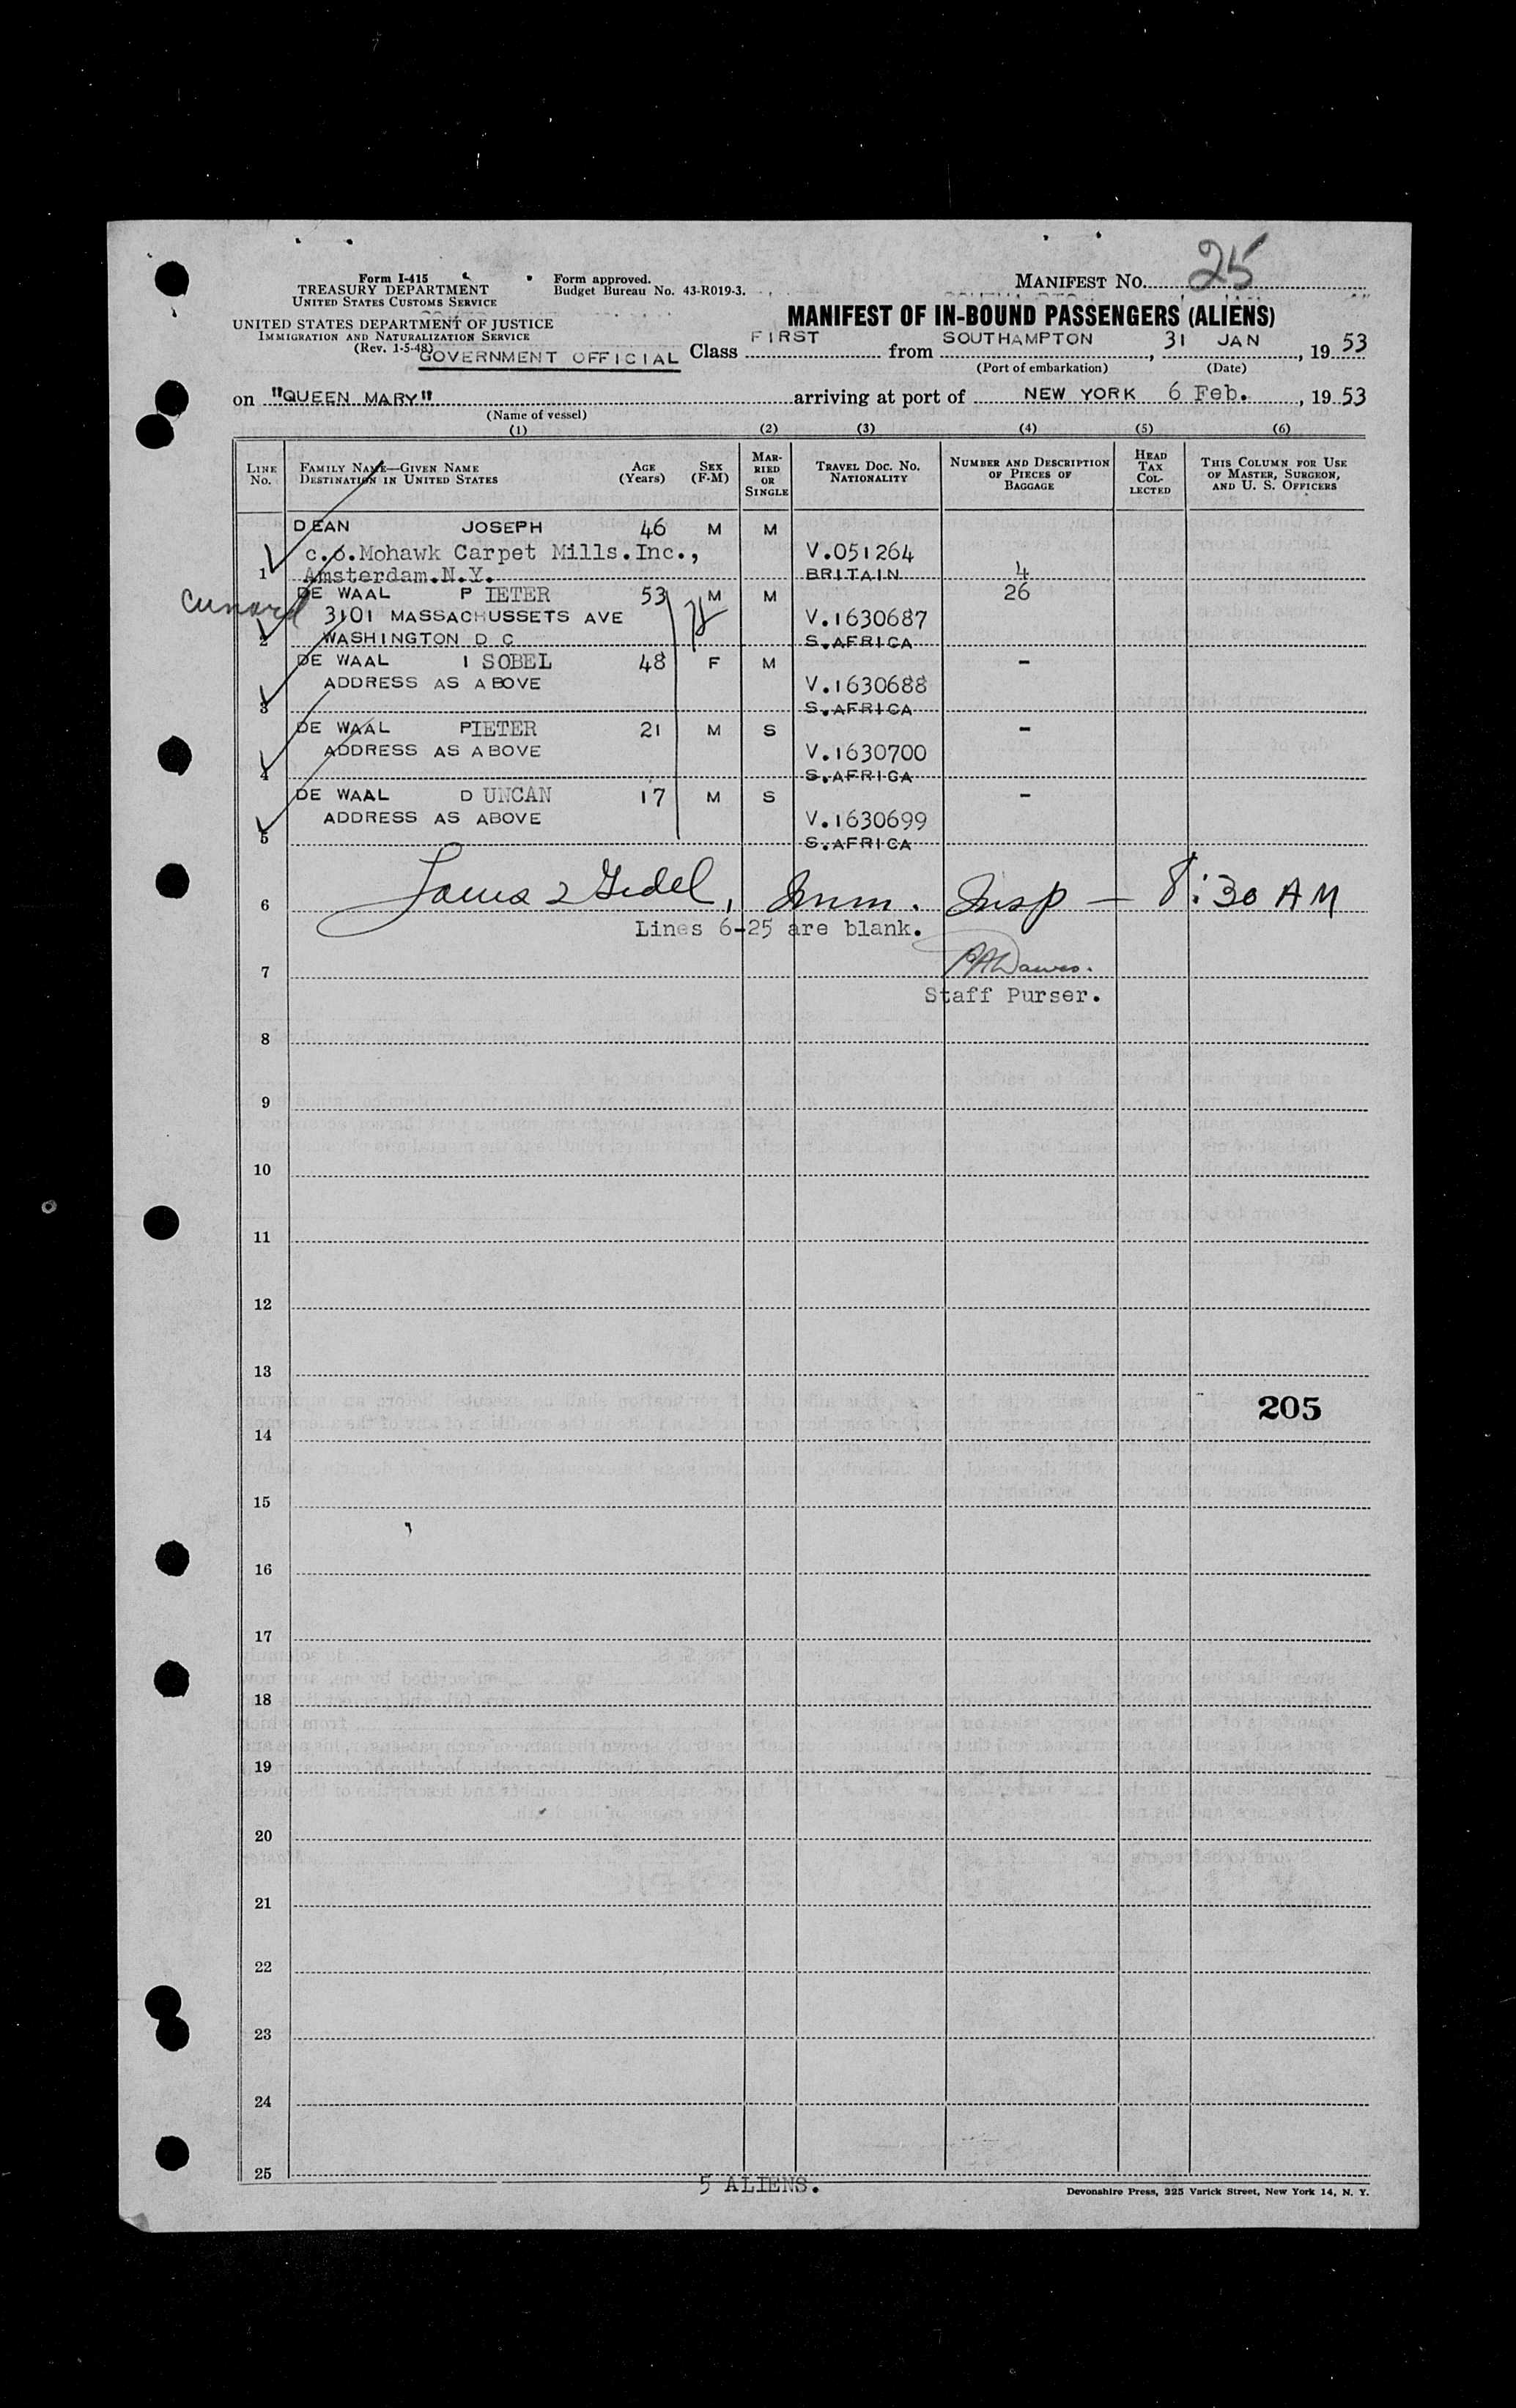 25
Form I-415
TREASURY DEPARTMENT
UNITED STATES CUSTOMS SERVICE
Form approved.
Budget Bureau No. 43-R019-3.
MANIFEST NO. 25
UNITED STATES DEPARTMENT OF JUSTICE
IMMIGRATION AND NATURALIZATION SERVICE
(Rev. 1-5-48)
MANIFEST OF IN-BOUND PASSENGERS (ALIENS)
GOVERNMENT OFFICIAL Class FIRST from SOUTHAMPTON, 31 JAN, 19 53
(Port of embarkation) (Date)
on "QUEEN MARY" arriving at port of NEW YORK 6 Feb., 19 53
(Name of vessel)
(1) (2) (3) (4) (5) (6)
LINE No. FAMILY NAME—GIVEN NAME DESTINATION IN UNITED STATES AGE (Years) SEX (F-M) MARRIED OR SINGLE TRAVEL DOC. NO. NATIONALITY NUMBER AND DESCRIPTION OF PIECES OF BAGGAGE HEAD TAX COLLECTED THIS COLUMN FOR USE OF MASTER, SURGEON, AND U. S. OFFICERS
DEAN JOSEPH 46 M M
c.o.Mohawk Carpet Mills.Inc., V.051264
1 Amsterdam.N.Y. BRITAIN 4
DE WAAL PIETER 53 M M 26
Cunard 3101 MASSACHUSSETS AVE V.1630687
2 WASHINGTON D C S.AFRICA
DE WAAL ISOBEL 48 F M -
ADDRESS AS ABOVE V.1630688
3 S.AFRICA
DE WAAL PIETER 21 M S -
ADDRESS AS ABOVE V.1630700
4 S.AFRICA
DE WAAL DUNCAN 17 M S -
ADDRESS AS ABOVE V.1630699
5 S.AFRICA
6 Imm. Insp — 8:30 AM
Lines 6-25 are blank.
7
Staff Purser.
8
9
10
11
12
13
205
14
15
16
17
18
19
20
21
22
23
24
25
5 ALIENS.
Devonshire Press, 225 Varick Street, New York 14, N. Y.